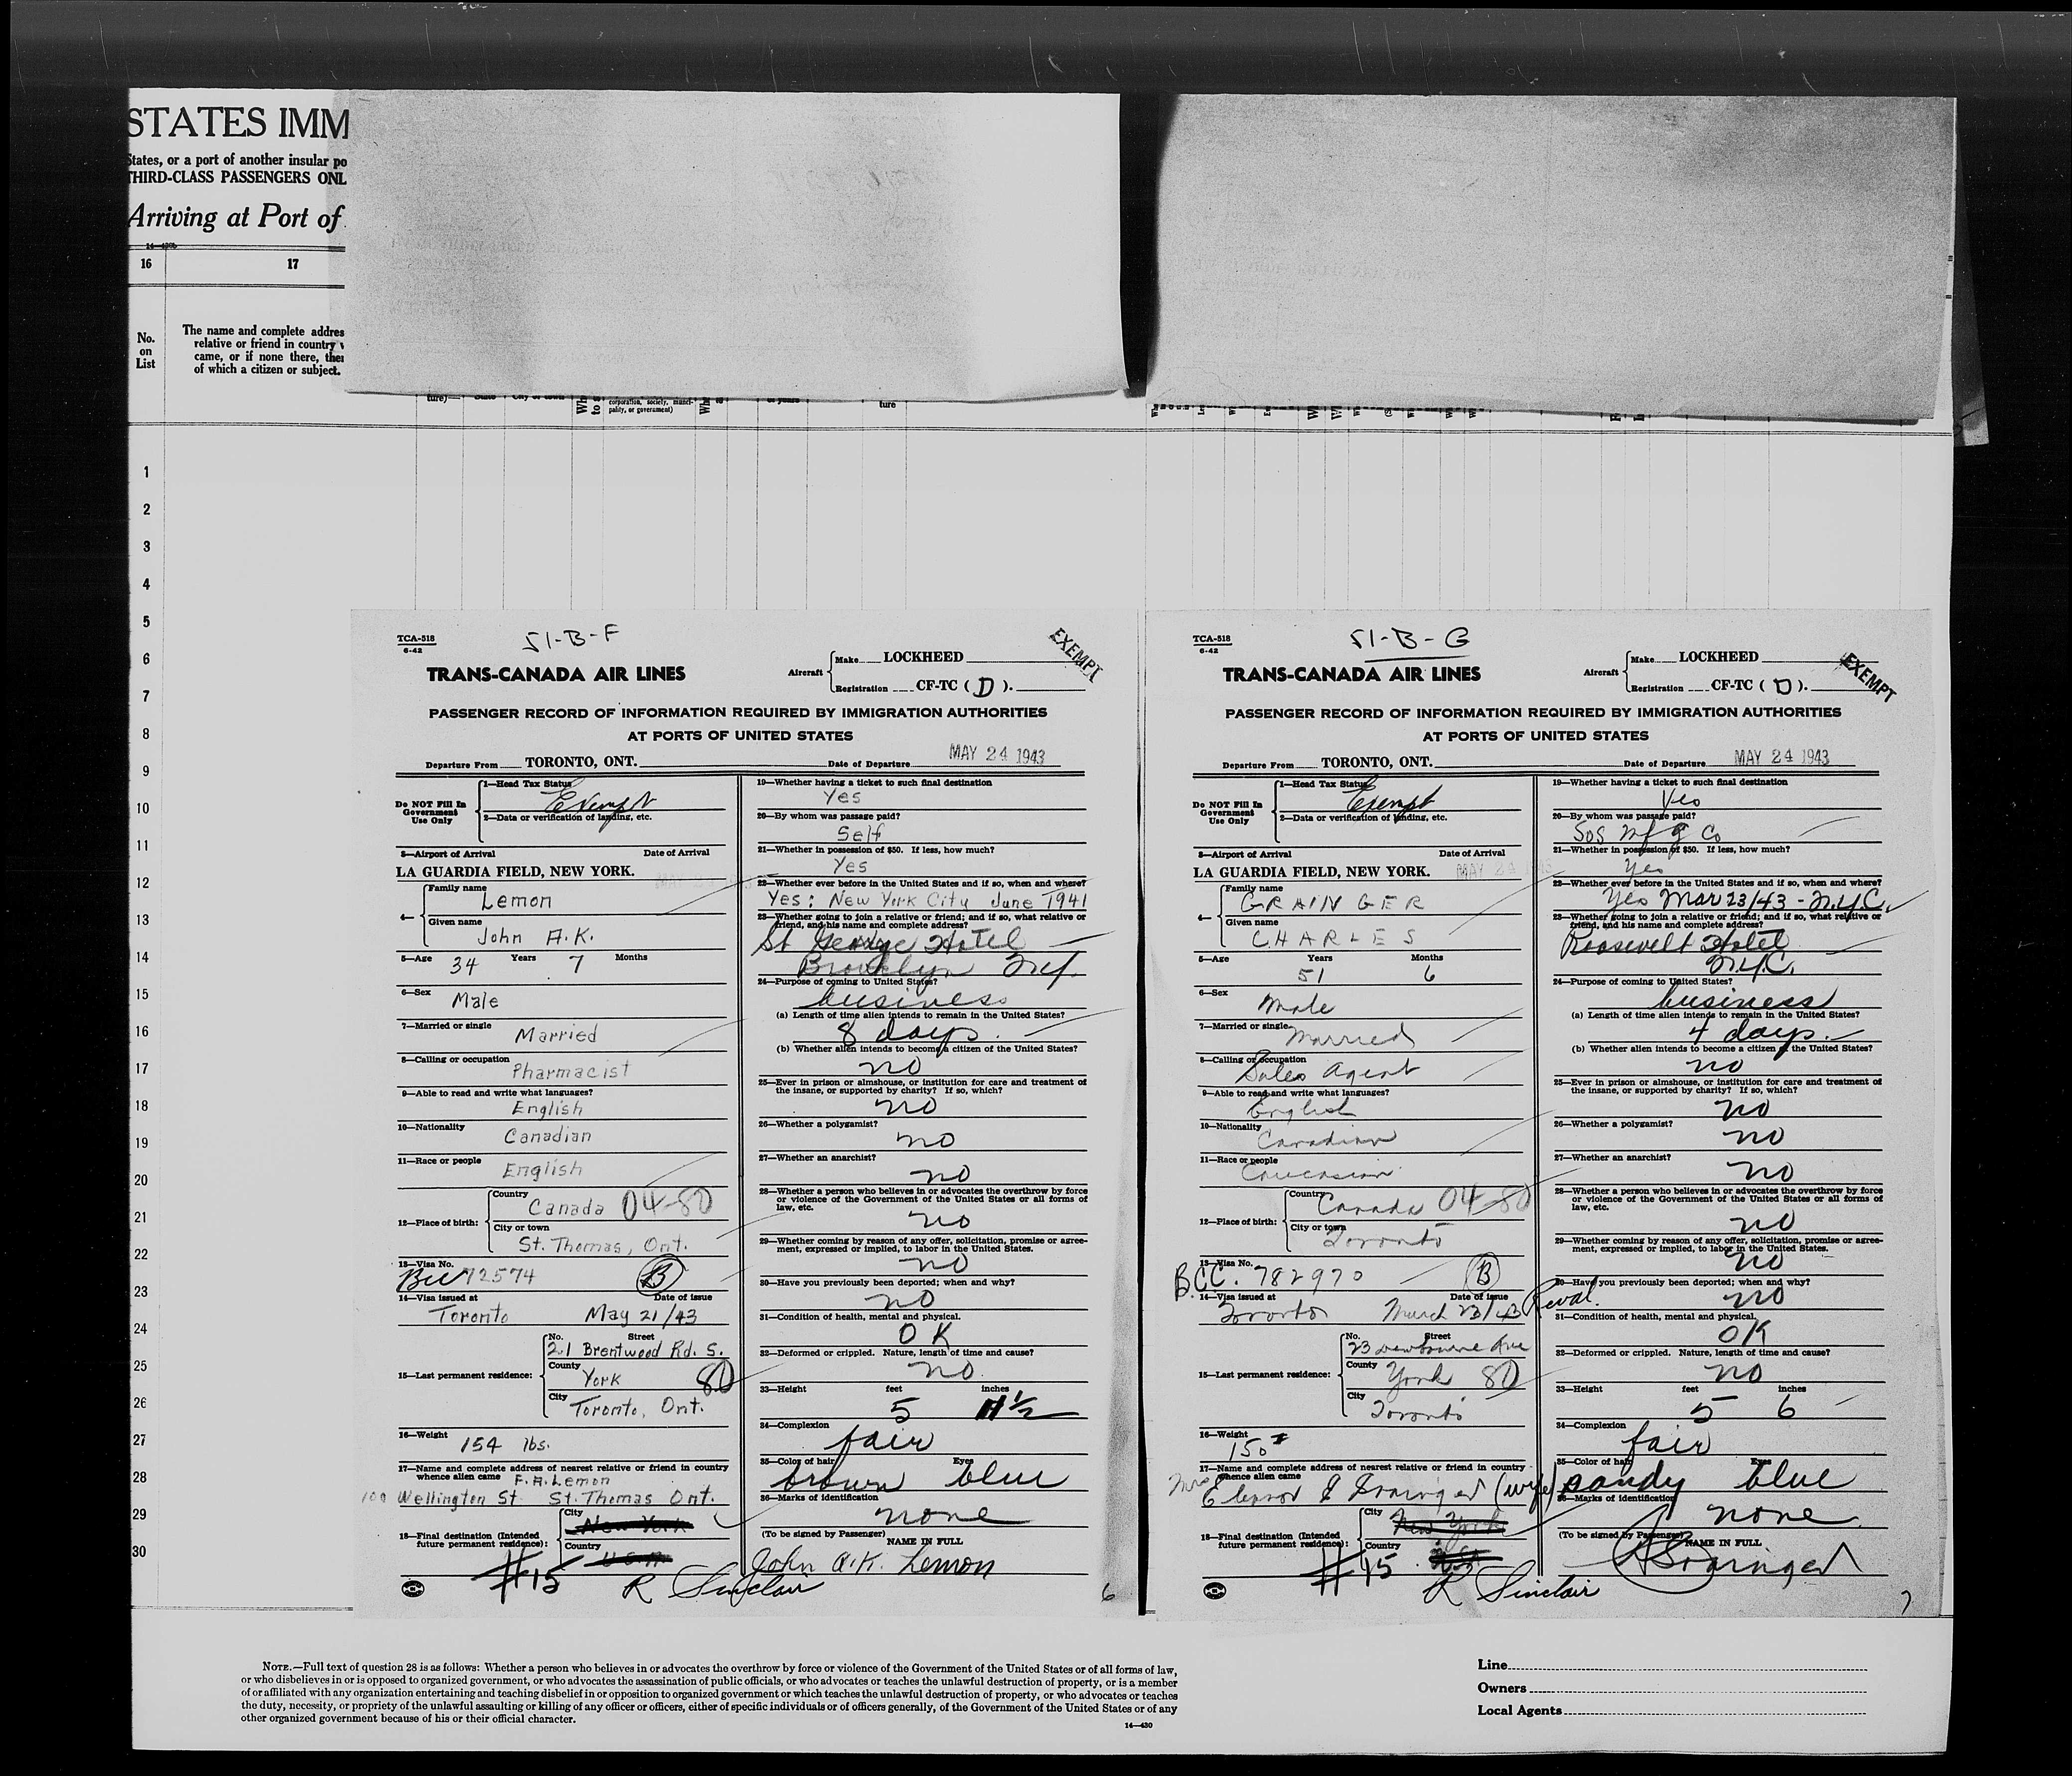 STATES IMM
States, or a port of another insular po
THIRD-CLASS PASSENGERS ONL
Arriving at Port of
14—430b
16 17
No. on List
The name and complete addres
relative or friend in country w
came, or if none there, then
of which a citizen or subject.
ture)— State City or town
corporation, society, munici-
pality, or government)
of years
ture
1
2
3
4
5
6
7
8
9
10
11
12
13
14
15
16
17
18
19
20
21
22
23
24
25
26
27
28
29
30
TCA-518
6-42
51-B-F
EXEMPT
TRANS-CANADA AIR LINES
Aircraft Make LOCKHEED
Registration CF-TC ( D ).
PASSENGER RECORD OF INFORMATION REQUIRED BY IMMIGRATION AUTHORITIES
AT PORTS OF UNITED STATES
Departure From TORONTO, ONT. Date of Departure MAY 24 1943
Do NOT Fill In Government Use Only
1—Head Tax Status
Exempt
2—Data or verification of landing, etc.
3—Airport of Arrival Date of Arrival
LA GUARDIA FIELD, NEW YORK.
4— Family name
Lemon
Given name
John A.K.
5—Age 34 Years 7 Months
6—Sex Male
7—Married or single Married
8—Calling or occupation
Pharmacist
9—Able to read and write what languages?
English
10—Nationality
Canadian
11—Race or people
English
12—Place of birth: Country
Canada 04-80
City or town
St. Thomas, Ont.
13—Visa No.
72574 B
14—Visa issued at Date of issue
Toronto May 21/43
15—Last permanent residence: No. Street
21 Brentwood Rd. S.
County
York 80
City
Toronto, Ont.
16—Weight 154 lbs.
17—Name and complete address of nearest relative or friend in country
whence alien came F. A. Lemon
100 Wellington St. St. Thomas Ont.
18—Final destination (Intended
future permanent residence): City
New York
Country
U.S.A.
#15
R Sinclair
19—Whether having a ticket to such final destination
Yes
20—By whom was passage paid?
Self
21—Whether in possession of $50. If less, how much?
Yes
22—Whether ever before in the United States and if so, when and where?
Yes: New York City June 1941
23—Whether going to join a relative or friend; and if so, what relative or
friend, and his name and complete address?
St George Hotel
Brooklyn N.Y.
24—Purpose of coming to United States?
business
(a) Length of time alien intends to remain in the United States?
8 days.
(b) Whether alien intends to become a citizen of the United States?
no
25—Ever in prison or almshouse, or institution for care and treatment of
the insane, or supported by charity? If so, which?
no
26—Whether a polygamist?
no
27—Whether an anarchist?
no
28—Whether a person who believes in or advocates the overthrow by force
or violence of the Government of the United States or all forms of
law, etc.
no
29—Whether coming by reason of any offer, solicitation, promise or agree-
ment, expressed or implied, to labor in the United States.
no
30—Have you previously been deported; when and why?
no
31—Condition of health, mental and physical.
OK
32—Deformed or crippled. Nature, length of time and cause?
no
33—Height feet inches
5 11 1/2
34—Complexion
fair
35—Color of hair Eyes
brown blue
36—Marks of identification
none
(To be signed by Passenger)
NAME IN FULL
John A.K. Lemon
6
TCA-518
6-42
51-B-G
EXEMPT
TRANS-CANADA AIR LINES
Aircraft Make LOCKHEED
Registration CF-TC ( D ).
PASSENGER RECORD OF INFORMATION REQUIRED BY IMMIGRATION AUTHORITIES
AT PORTS OF UNITED STATES
Departure From TORONTO, ONT. Date of Departure MAY 24 1943
Do NOT Fill In Government Use Only
1—Head Tax Status
Exempt
2—Data or verification of landing, etc.
3—Airport of Arrival Date of Arrival
LA GUARDIA FIELD, NEW YORK. MAY 24 1943
4— Family name
GRAINGER
Given name
CHARLES
5—Age Years Months
51 6
6—Sex
Male
7—Married or single
Married
8—Calling or occupation
Sales Agent
9—Able to read and write what languages?
English
10—Nationality
Canadian
11—Race or people
Caucasian
12—Place of birth: Country
Canada 04-80
City or town
Toronto
13—Visa No.
B.C.C. 782970 B
14—Visa issued at Date of issue
Toronto March 23/43 Reval.
15—Last permanent residence: No. Street
23 Ave
County
York 80
City
Toronto
16—Weight
150#
17—Name and complete address of nearest relative or friend in country
whence alien came
Mrs Eleanor Grainger (wife)
18—Final destination (Intended
future permanent residence): City
New York
Country
#15
R Sinclair
19—Whether having a ticket to such final destination
Yes
20—By whom was passage paid?
SOS Mfg Co
21—Whether in possession of $50. If less, how much?
Yes
22—Whether ever before in the United States and if so, when and where?
Yes Mar 23/43 - N.Y.C.
23—Whether going to join a relative or friend; and if so, what relative or
friend, and his name and complete address?
Roosevelt Hotel
N.Y.C.
24—Purpose of coming to United States?
business
(a) Length of time alien intends to remain in the United States?
4 days.
(b) Whether alien intends to become a citizen of the United States?
no
25—Ever in prison or almshouse, or institution for care and treatment of
the insane, or supported by charity? If so, which?
no
26—Whether a polygamist?
no
27—Whether an anarchist?
no
28—Whether a person who believes in or advocates the overthrow by force
or violence of the Government of the United States or all forms of
law, etc.
no
29—Whether coming by reason of any offer, solicitation, promise or agree-
ment, expressed or implied, to labor in the United States.
no
30—Have you previously been deported; when and why?
no
31—Condition of health, mental and physical.
OK
32—Deformed or crippled. Nature, length of time and cause?
no
33—Height feet inches
5 6
34—Complexion
fair
35—Color of hair Eyes
sandy blue
36—Marks of identification
none
(To be signed by Passenger)
NAME IN FULL
Grainger
7
NOTE.—Full text of question 28 is as follows: Whether a person who believes in or advocates the overthrow by force or violence of the Government of the United States or of all forms of law,
or who disbelieves in or is opposed to organized government, or who advocates the assassination of public officials, or who advocates or teaches the unlawful destruction of property, or is a member
of or affiliated with any organization entertaining and teaching disbelief in or opposition to organized government or which teaches the unlawful destruction of property, or who advocates or teaches
the duty, necessity, or propriety of the unlawful assaulting or killing of any officer or officers, either of specific individuals or of officers generally, of the Government of the United States or of any
other organized government because of his or their official character.
14—430
Line
Owners
Local Agents